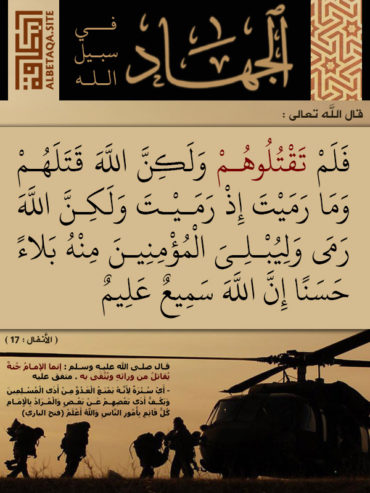 البطاقة
ALBETAQA.SITE
الجهاد
في
سبيل
الله
قال الله تعالى :
فَلَمْ تَقْتُلُوهُمْ وَلَكِنَّ اللَّهَ قَتَلَهُمْ
وَمَا رَمَيْتَ إِذْ رَمَيْتَ وَلَكِنَّ اللَّهَ
رَمَى وَلِيُبْلِيَ الْمُؤْمِنِينَ مِنْهُ بَلَاءً
حَسَنًا إِنَّ اللَّهَ سَمِيعٌ عَلِيمٌ
( الأنفال : 17 )
قال صلى الله عليه وسلم : إنما الإمامُ جُنةٌ
يُقاتَلُ مِن ورائِهِ ويُتَّقى به . متفق عليه
- أيْ سُتْرَةٌ لأنهُ يَمْنَعُ العَدُوَّ مِن أذى المُسلمينَ
ويَكُفُّ أذى بَعْضِهِمْ عَنْ بَعْضٍ والمُرَادُ بالإمامِ
كُلُّ قائمٍ بأمُورِ النَّاسِ واللهُ أعْلَمُ (فتح الباري)